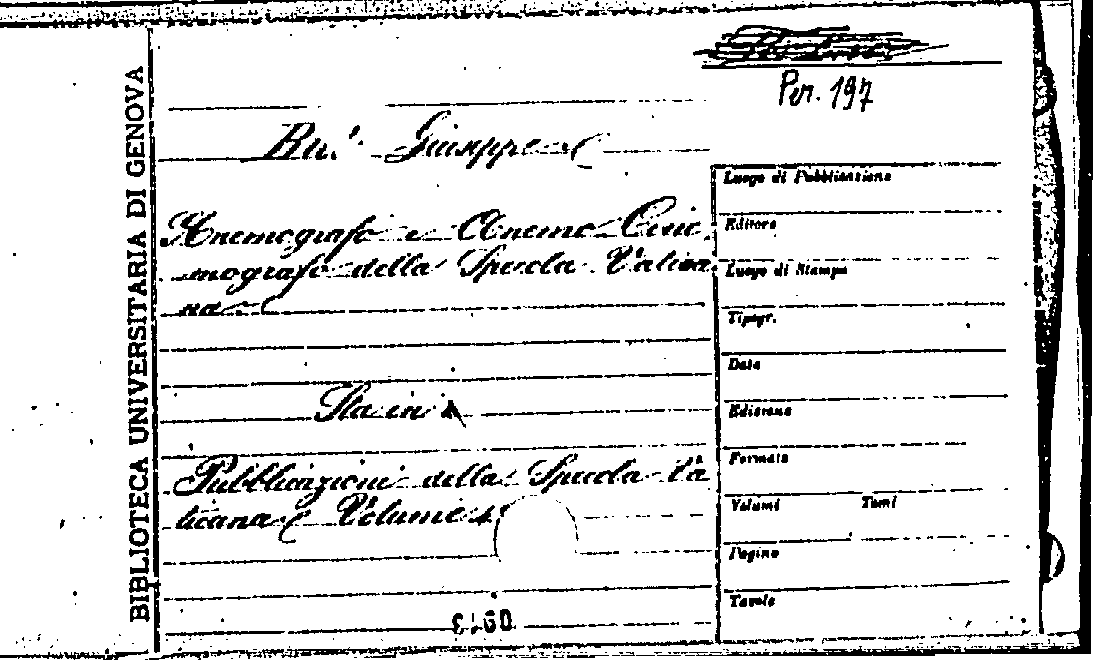 BIBLIOTECA UNIVERSITARIA DI GENOVA
Per. 197
Giuseppe
Anemografo e Anemo
mografo della Specola Vatica
na
Sta in
Pubblicazioni della Specola Va
ticana Volume
Luogo di Pubblicazione
Editore
Luogo di Stampa
Tipogr.
Data
Edizione
Formato
Volumi Tomi
Pagine
Tavole